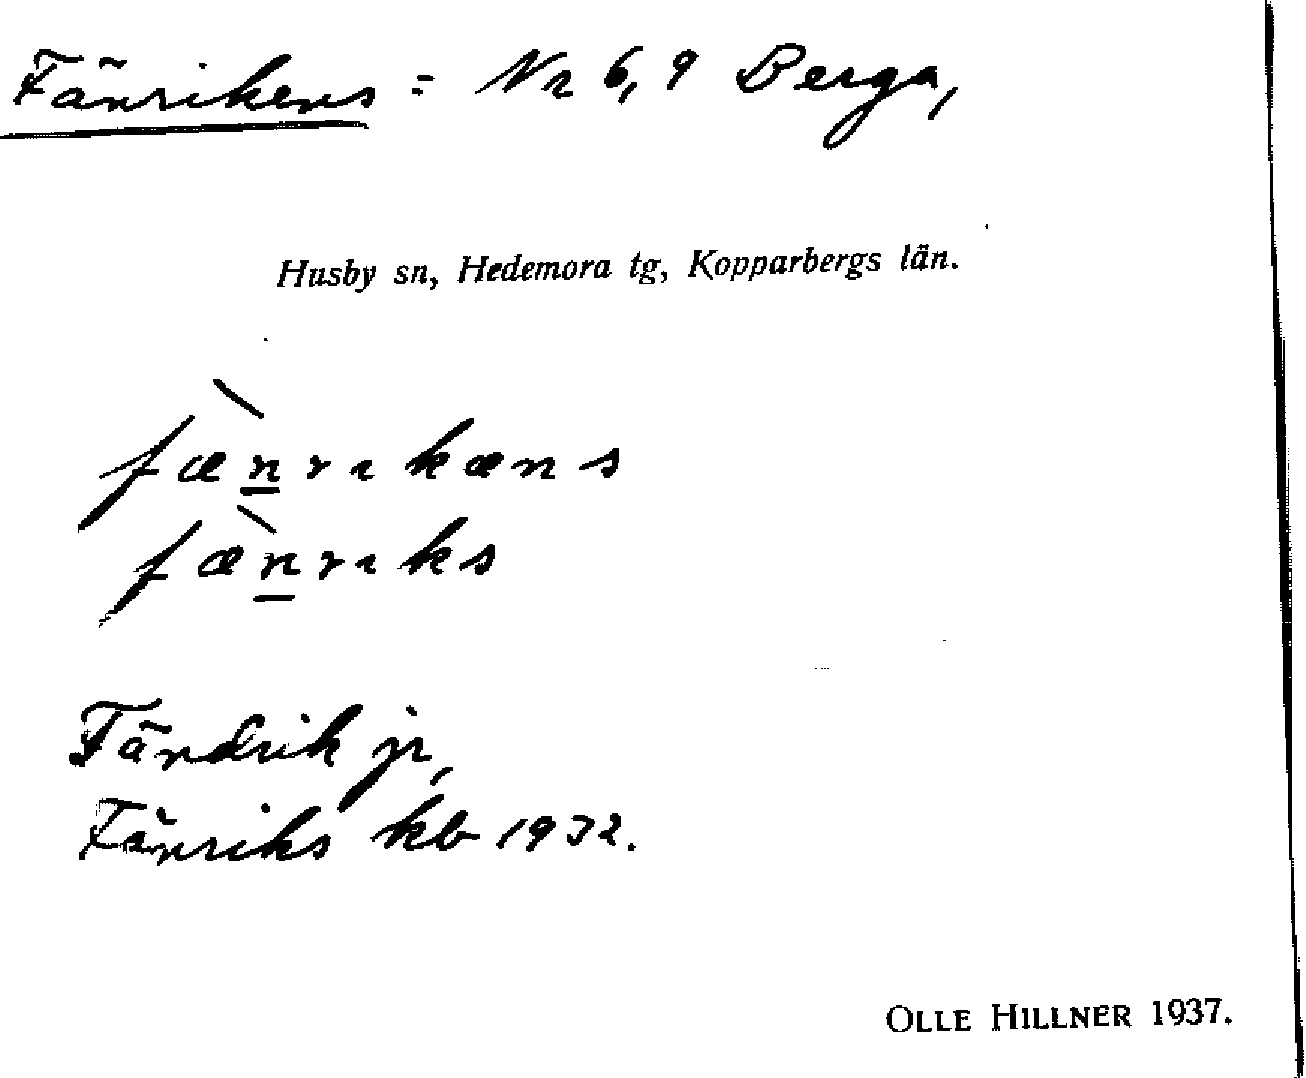 Fänrikens = Nr 6, 9 Berga,
Husby sn, Hedemora tg, Kopparbergs län.
fæ̀n̲rikæns
fæ̀n̲riks
Fändrik jr,
Fänriks kb 1932.
OLLE HILLNER 1937.